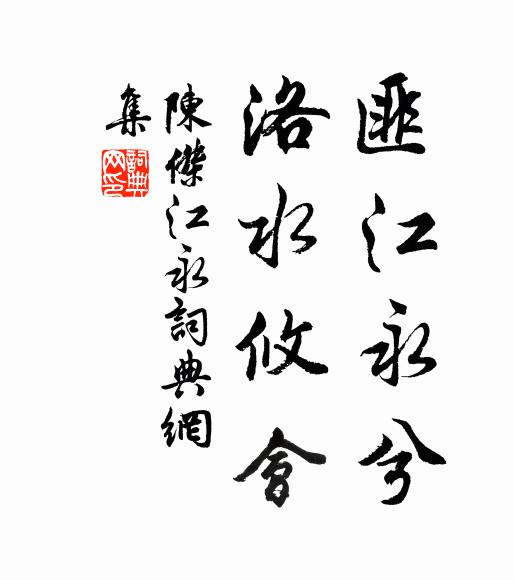 匪江永兮
洛水攸會
陳傑江永詞典網
集
詞典
網印